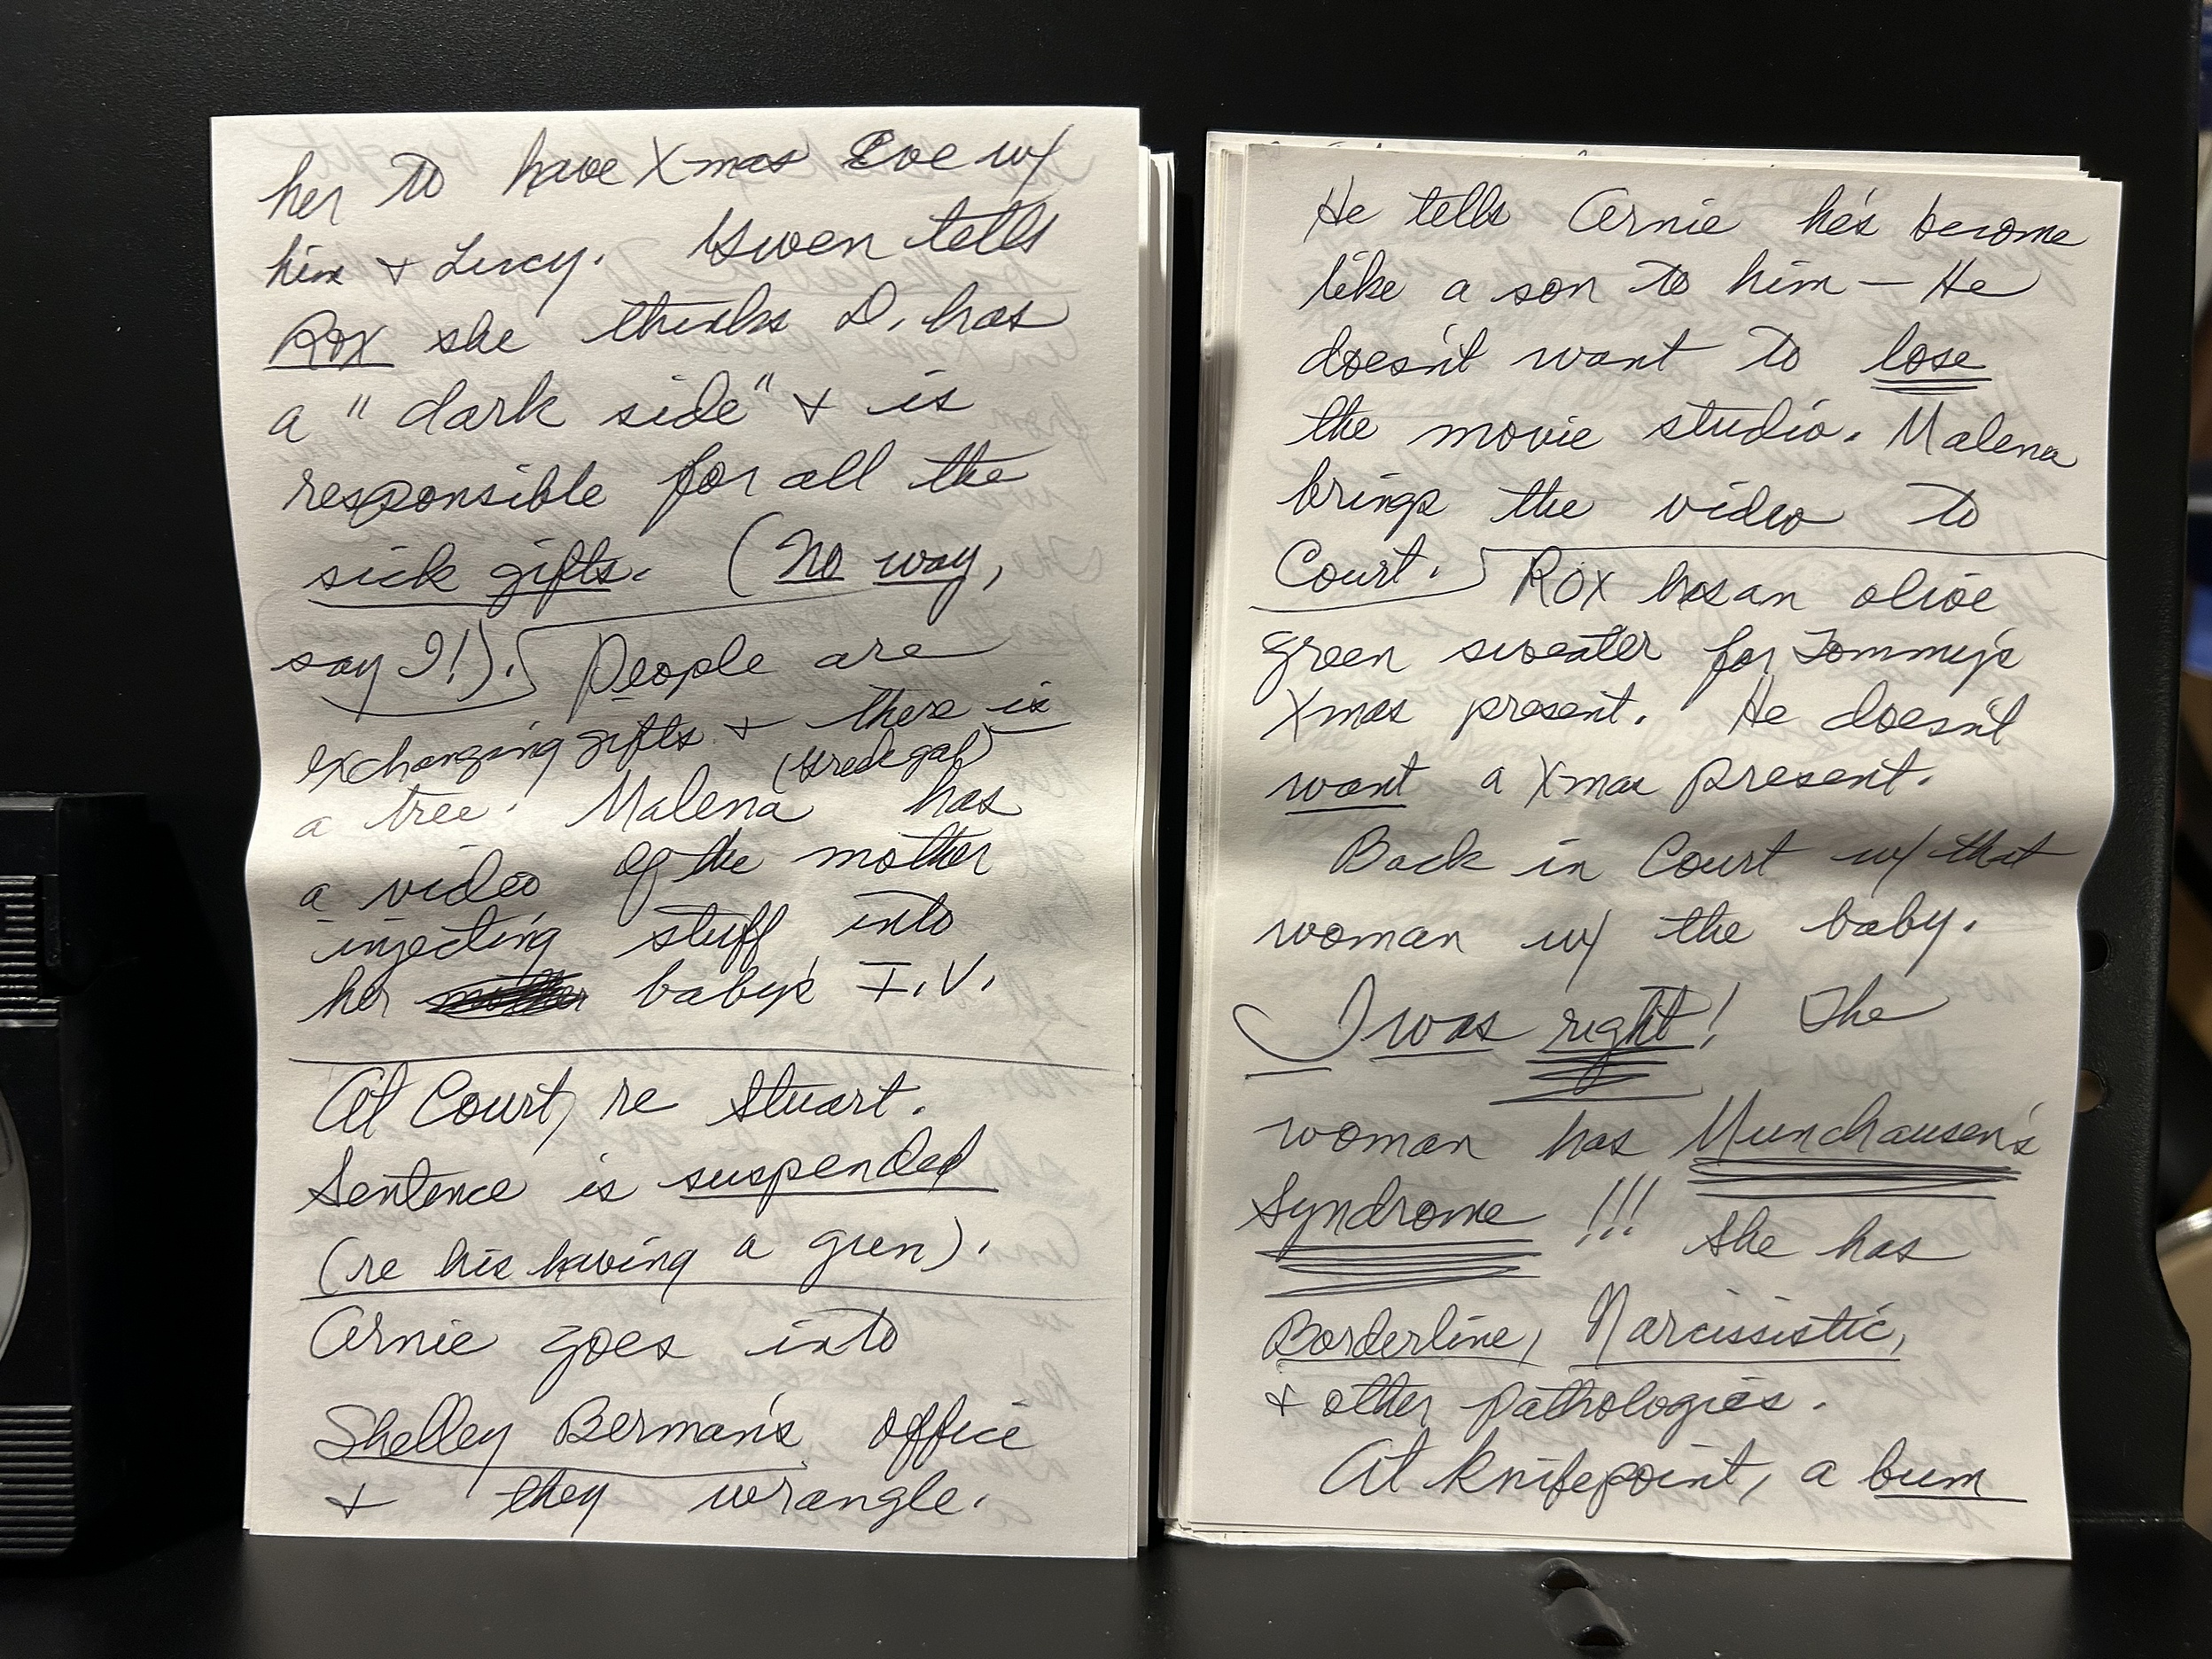 her to have Xmas Eve w/
him + Lucy. Gwen tells
Rox she thinks D. has
a "dark side" + is
responsible for all the
sick gifts. (No way,
say I!). People are
exchanging gifts + there is
a tree. Malena (Gredegal) has
a video of the mother
injecting stuff into
her baby's I.V.
At Court, re Stuart.
Sentence is suspended
(re his having a gun).
Arnie goes into
Shelley Berman's office
+ they wrangle.
He tells Arnie he's become
like a son to him — He
doesn't want to lose
the movie studio. Malena
brings the video to
Court. Rox has an olive
green sweater for Tommy's
Xmas present. He doesn't
want a Xmas present.
Back in Court w/ that
woman w/ the baby.
I was right! The
woman has Munchausen's
Syndrome!!! She has
Borderline, Narcissistic,
+ other pathologies.
At knifepoint, a bum